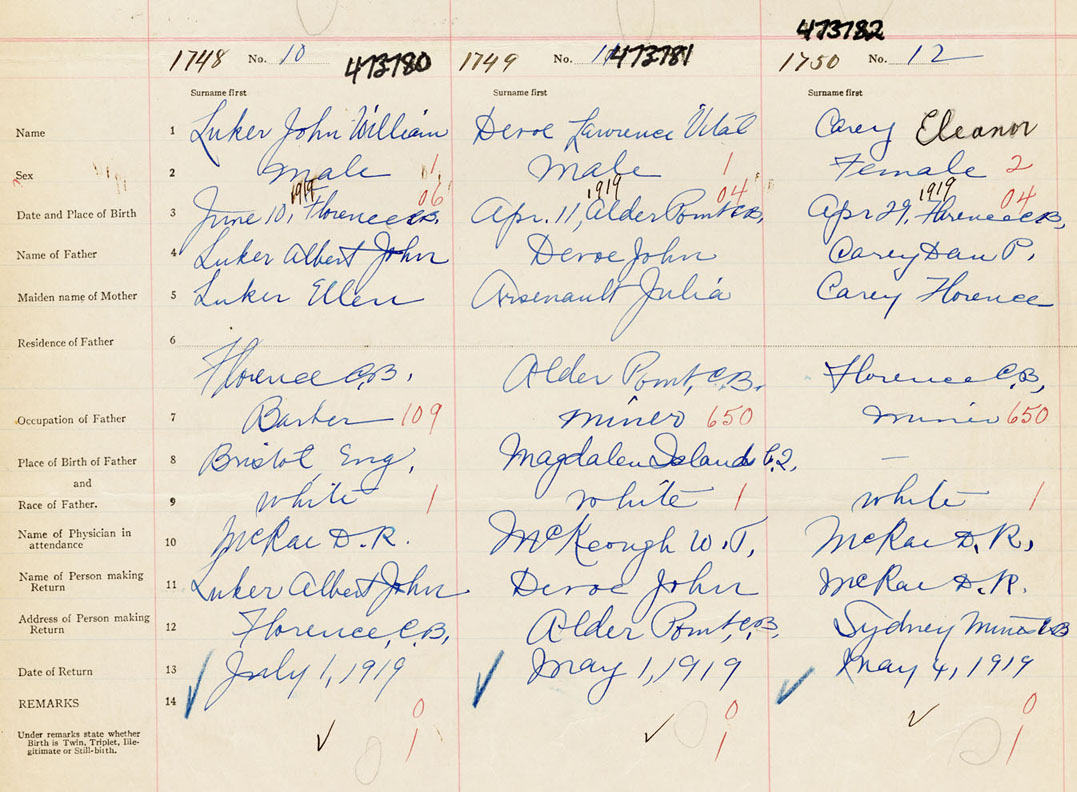 473782
1748 No. 10 473780 1749 No. 11 473781 1750 No. 12
Surname first Surname first Surname first
Name 1 Luker John William Devoe Lawrence Vital Carey Eleanor
Sex 2 male 1 male 1 Female 2
1919 06 1919 04 1919 04
Date and Place of Birth 3 June 10, Florence C.B. Apr. 11, Alder Point C.B. Apr 29, Florence C.B,
Name of Father 4 Luker Albert John Devoe John Carey Dan P.
Maiden name of Mother 5 Luker Ellen Arsenault Julia Carey Florence
Residence of Father 6
Florence C.B. Alder Point, C.B. Florence C.B,
Occupation of Father 7 Barber 109 miner 650 miner 650
Place of Birth of Father 8 Bristol, Eng. Magdalen Island P.Q. —
and
Race of Father. 9 white 1 white 1 white 1
Name of Physician in
attendance 10 McRae D.R. McKeough W.T. McRae D.R.
Name of Person making
Return 11 Luker Albert John Devoe John McRae D.R.
Address of Person making
Return 12 Florence, C.B. Alder Point, C.B. Sydney Mines C.B
Date of Return 13 July 1, 1919 May 1, 1919 May 4, 1919
REMARKS 14 0 0 0
Under remarks state whether
Birth is Twin, Triplet, Ille-
gitimate or Still-birth. 1 1 1